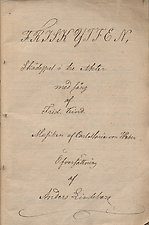 FRISKYTTEN.
Skådespel i tre Akter
med sång
af
Fred. Kind.
Musiken af Carl Maria von Weber
Öfversättning
af
Anders Lindeberg